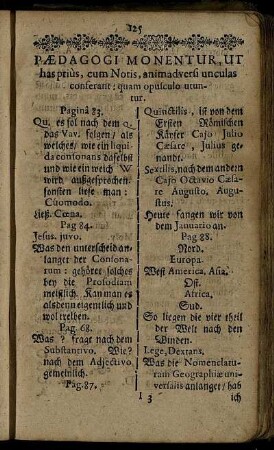 125
PÆDAGOGI MONENTUR, UT
has prius, cum Notis, animadversi unculas
conferant; quam opusculo utun-
tur.
Paginâ 83.
Qu. es sol nach dem Q.
das Vav. folgen/ als
welches/ wie ein liqui-
da consonans daselbst
und wie ein weich W
wird außgesprochen/
sonsten liese man:
Cuomodo.
ließ. Cœna.
Pag 84.
Jesus. juvo.
Was den unterscheid an-
langet der Consona-
rum: gehöret solches
bey die Prosodiam
meistlich. Kan man es
alsdenn eigentlich und
wol treiben.
Pag. 68.
Was? frage nach dem
Substantivo, Wie?
nach dem Adjectivo
gemeinlich.
Pag. 87.
Quinctilis, ist von dem
Ersten Römischen
Käyser Cajo Julio
Cæsare, Julius ge-
nandt.
Sextilis, nach dem andern
Cajo Octavio Cæsa-
re Augusto, Augu-
stus.
Heute fangen wir von
dem Januario an.
Pag 88.
Nord.
Europa.
West America, Asia.
Ost.
Africa,
Sud.
So liegen die vier theil
der Welt nach den
Winden.
Lege, Dextans.
Was die Nomenclatu-
ram Geographiæ uni-
versalis anlanget/ hab
I 3 ich